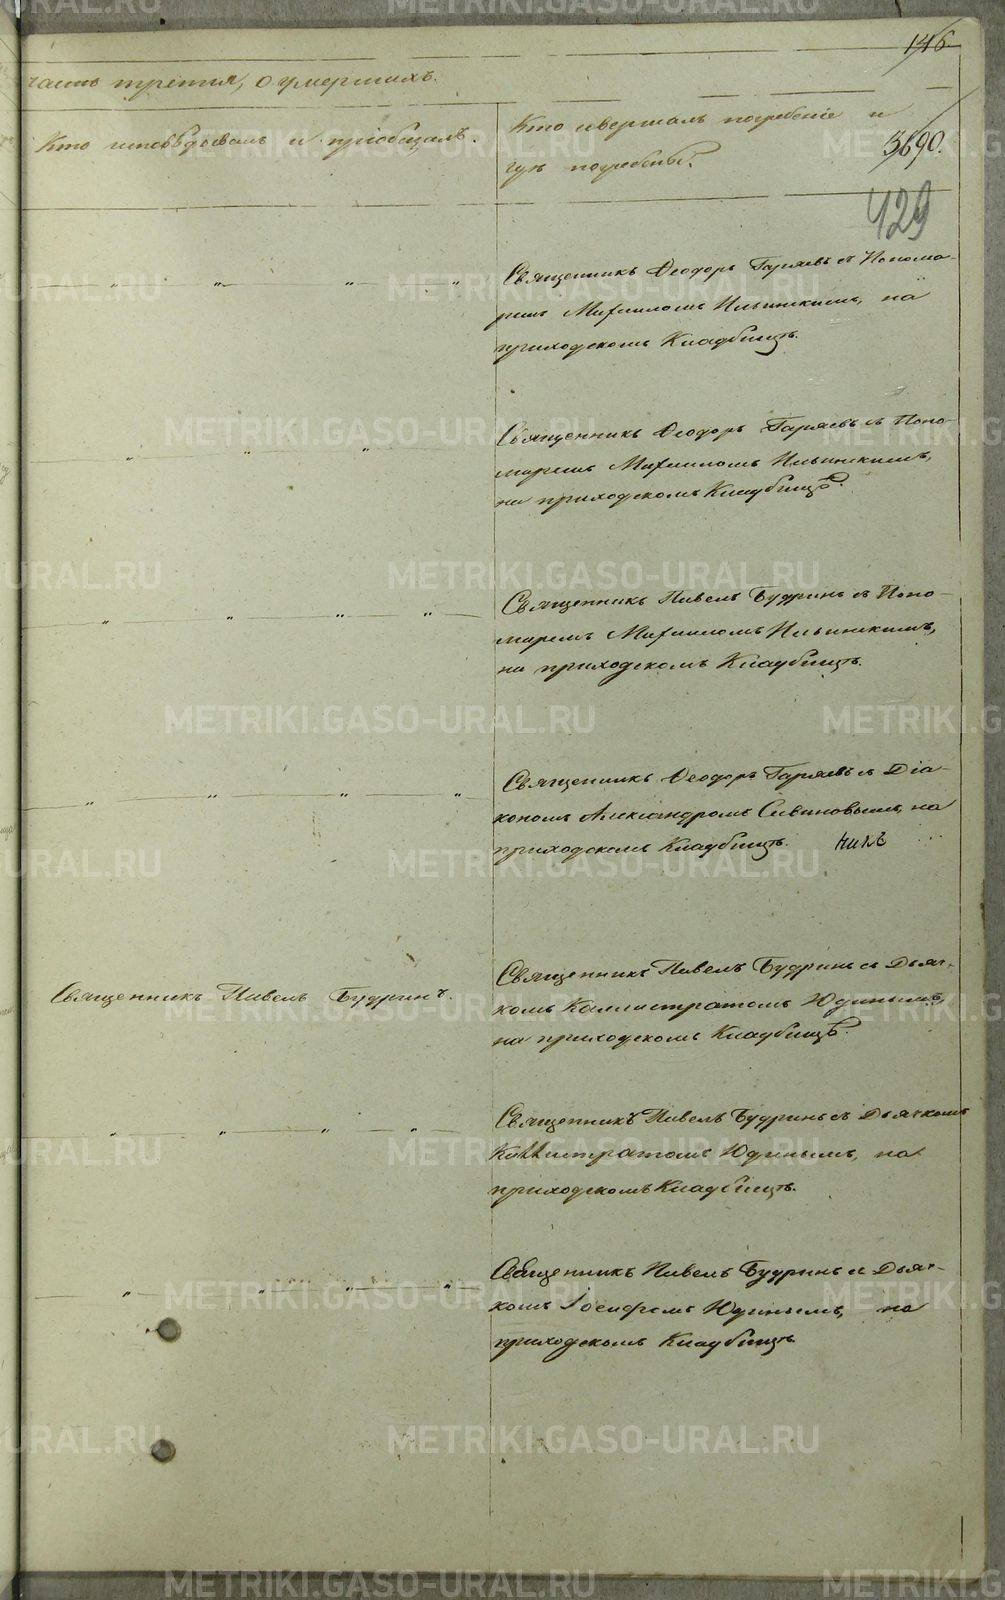 146.
часть третія, о умершихъ.
Кто исповѣдовалъ и пріобщалъ.
Кто совершалъ погребеніе и
гдѣ погребены.
3690.
429
Священникъ Ѳеодоръ Гаряевъ съ Понома-
ремъ Михаиломъ Ильинскимъ, на
приходскомъ Кладбищѣ.
Священникъ Ѳеодоръ Гаряевъ съ Поно-
маремъ Михаиломъ Ильинскимъ,
на приходскомъ Кладбищѣ.
Священникъ Павелъ Будринъ съ Поно-
маремъ Михаиломъ Ильинскимъ,
на приходскомъ Кладбищѣ.
Священникъ Ѳеодоръ Гаряевъ съ Діа-
кономъ Александромъ Савиновымъ, на
приходскомъ Кладбищѣ.
Священникъ Павелъ Будринъ.
Священникъ Павелъ Будринъ съ Дьяч-
комъ Каллистратомъ Юдинымъ,
на приходскомъ Кладбищѣ.
Священникъ Павелъ Будринъ съ Дьячкомъ
Каллистратомъ Юдинымъ, на
приходскомъ Кладбищѣ.
Священникъ Павелъ Будринъ съ Дьяч-
комъ Іосифомъ Юдинымъ, на
приходскомъ Кладбищѣ
METRIKI.GASO-URAL.RU